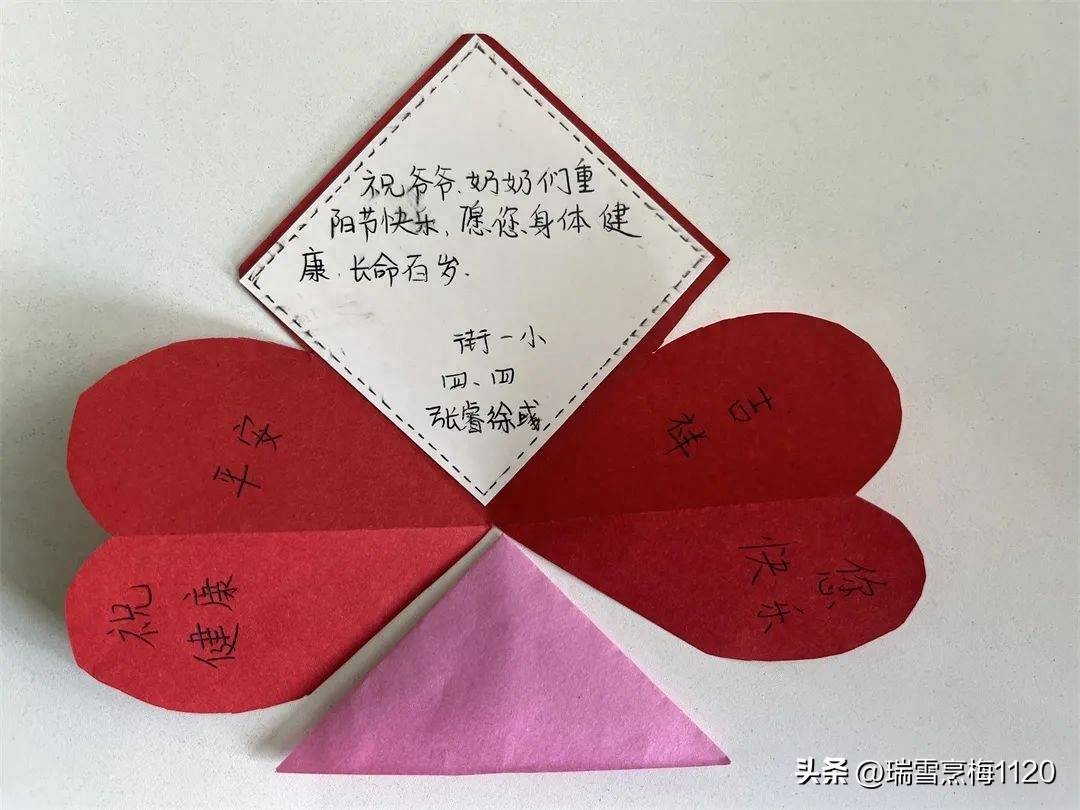 祝爷爷、奶奶们重
阳节快乐，愿您身体健
康，长命百岁.
街一小
四、四
张睿徐彧
平安
吉祥
祝
健康
您
快乐
头条 @瑞雪烹梅1120